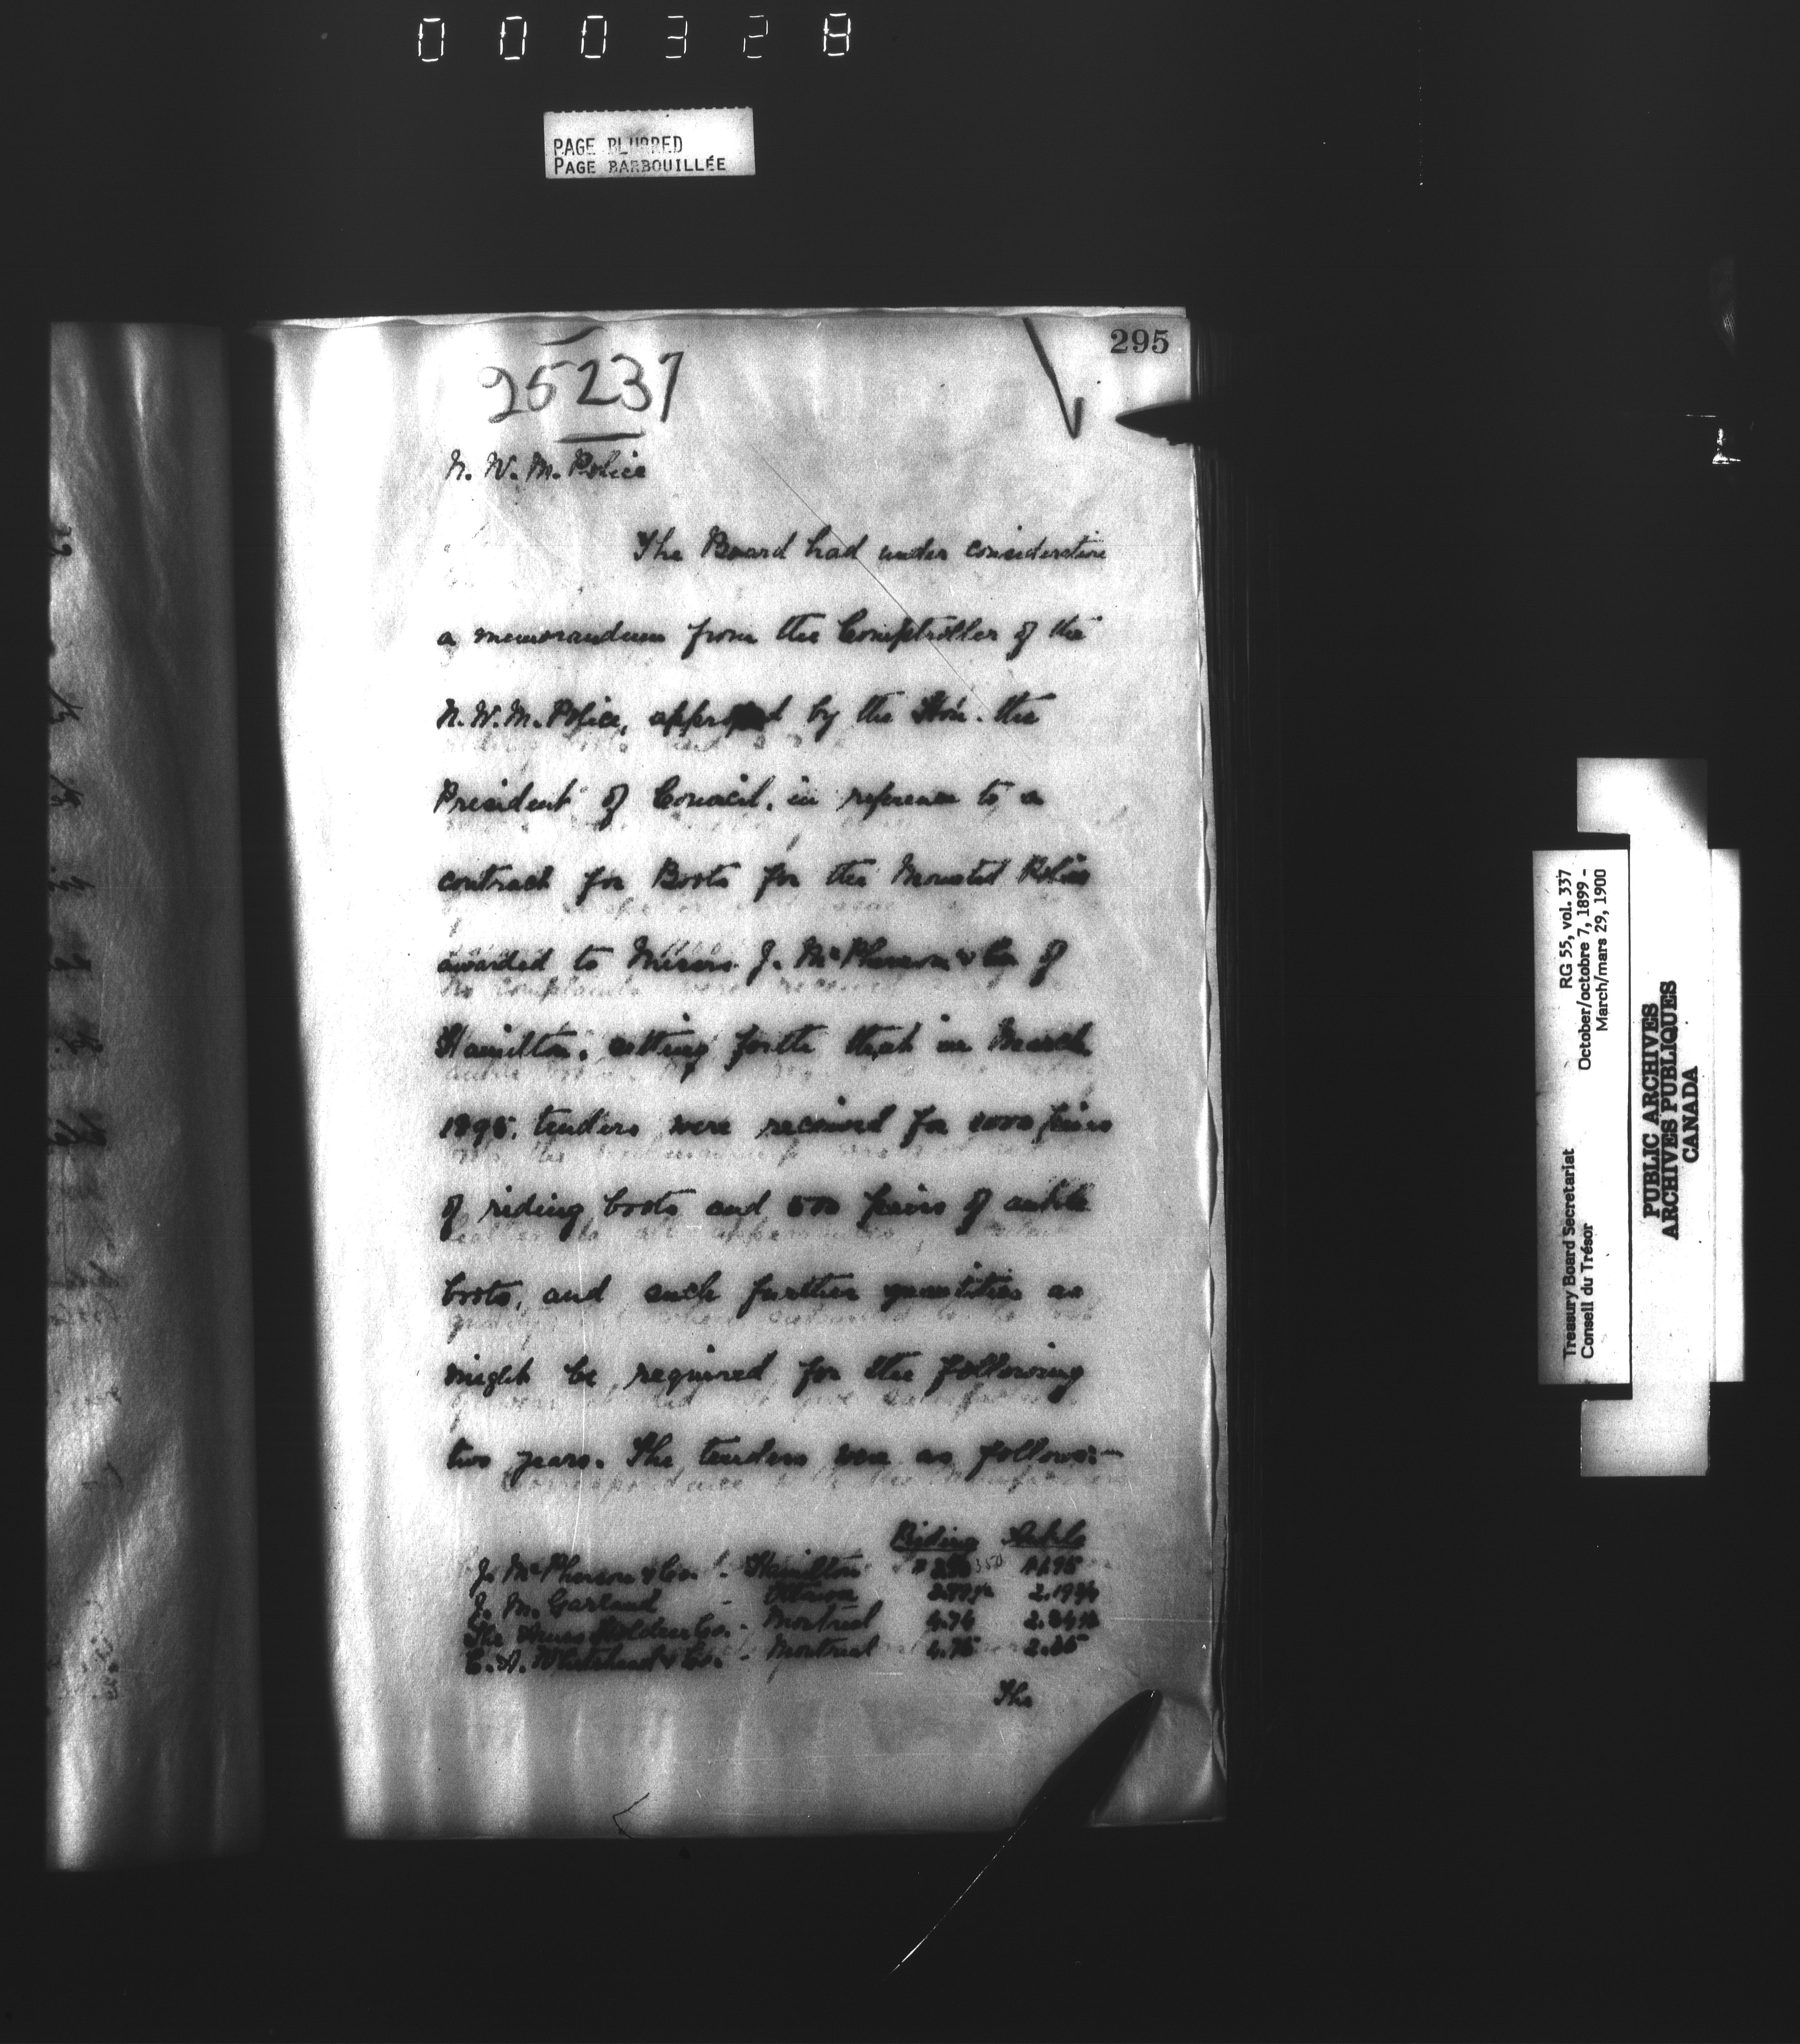 000328
PAGE BLURRED
PAGE BARBOUILLÉE
295
25237
N. W. M. Police
The Board had under consideration
a memorandum from the Comptroller of the
N. W. M. Police, approved by the Hon. the
President of Council, in reference to a
contract for Boots for the Mounted Police
awarded to Messrs. J. McPherson & Co. of
Hamilton, setting forth that in March
tenders were received for 1000 pairs
of riding boots and 500 pairs of ankle
boots, and such further quantities as
might be required for the following
two years. The tenders were as follows:-
Riding Ankle
J. McPherson & Co. - Hamilton 350
J. M. Garland - Ottawa
The Ames Holden Co. - Montreal 4.74
- Montreal 4.75
The
Treasury Board Secretariat RG 55, vol. 337
Conseil du Trésor October/octobre 7, 1899 -
March/mars 29, 1900
PUBLIC ARCHIVES
ARCHIVES PUBLIQUES
CANADA